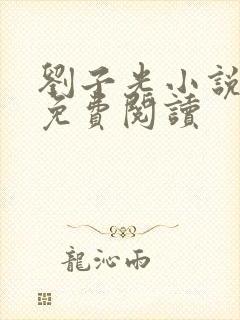 劉子光小說
免費閱讀
龍沁雨